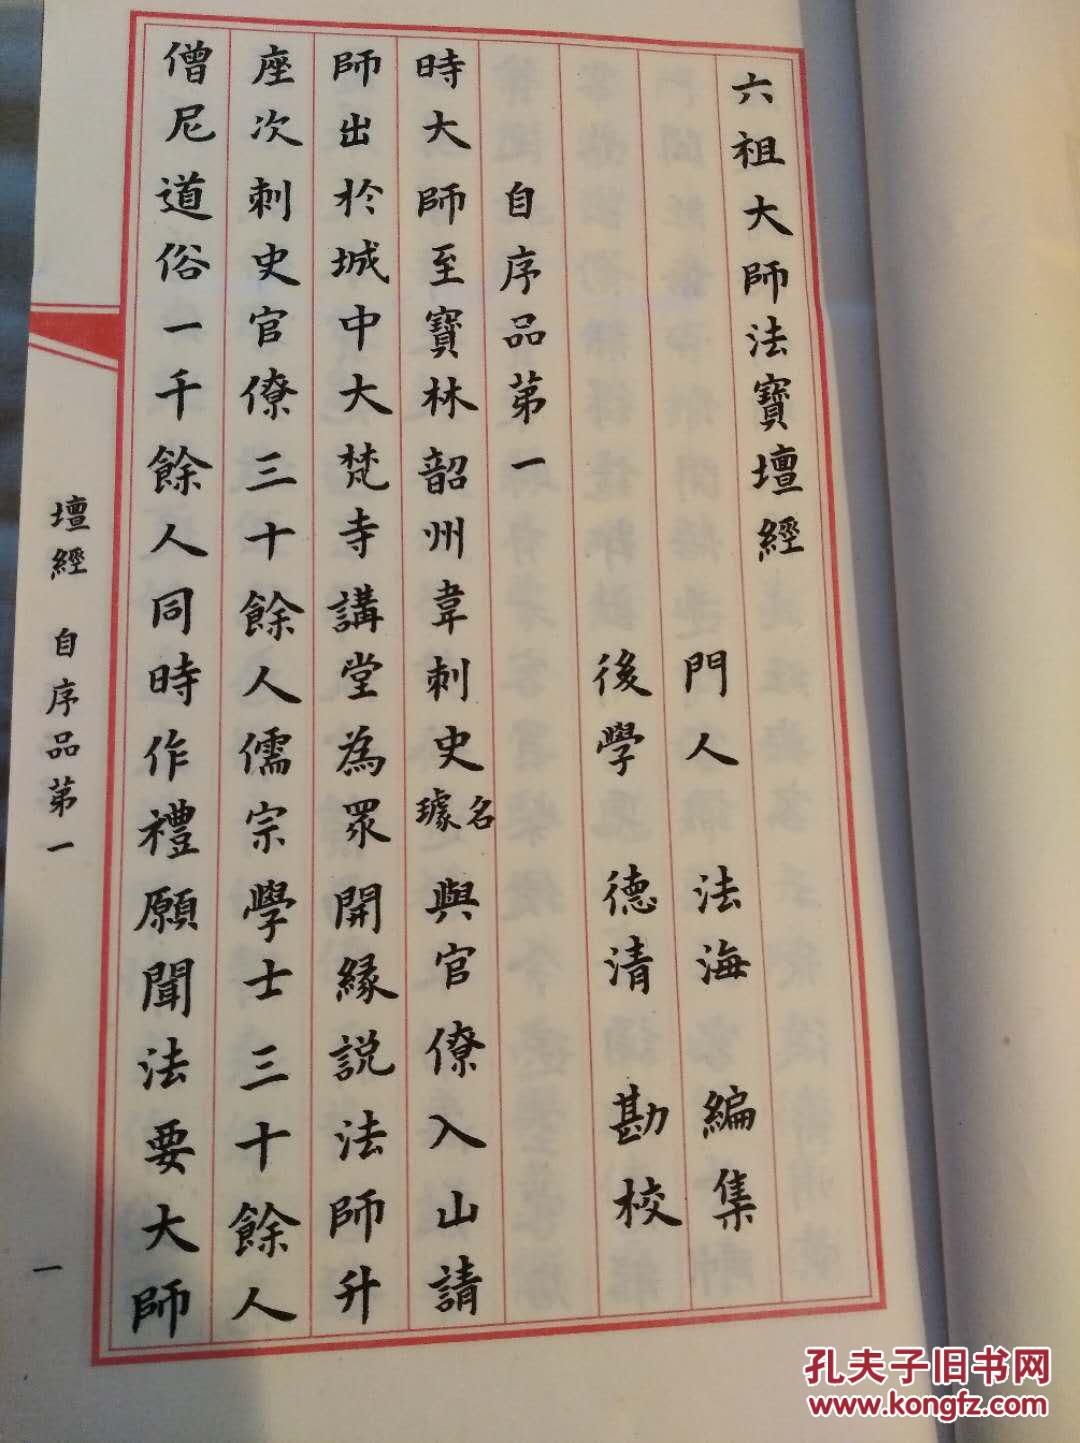 六祖大師法寶壇經
門人 法海 編集
後學 德清 勘校
自序品第一
時大師至寶林韶州韋刺史名璩與官僚入山請
師出於城中大梵寺講堂為眾開緣說法師升
座次刺史官僚三十餘人儒宗學士三十餘人
僧尼道俗一千餘人同時作禮願聞法要大師
壇經 自序品第一
一
孔夫子旧书网
www.kongfz.com